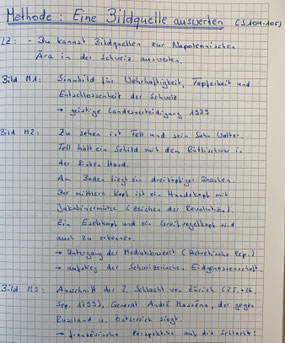 Methode: Eine Bildquelle auswerten (S.104-105)
LZ: - Du kannst Bildquellen zur Napoleonischen
Ära in der Schweiz auswerten.
Bild M1: Sinnbild für Wehrhaftigkeit, Tapferkeit und
Entschlossenheit der Schweiz
→ geistige Landesverteidigung 1939
Bild M2: Zu sehen ist Tell und sein Sohn Walter.
Tell hält ein Schild mit dem Rütlischwur in
der linken Hand.
Am Boden liegt ein dreiköpfiger Drachen.
Der mittlere Kopf ist ein Hundekopf mit
Jakobinermütze (Zeichen der Revolution).
Ein Eselskopf und ein Greifvogelkopf sind
auch zu erkennen.
→ Untergang der Mediationszeit (Helvetische Rep.)
→ Aufstieg der Schweizerischen Eidgenossenschaft
Bild M3: Ausschnitt der 2. Schlacht von Zürich (25. + 26.
Sep. 1799). General André Masséna, der gegen
Russland und Österreich siegt.
→ französische Perspektive auf die Schlacht!